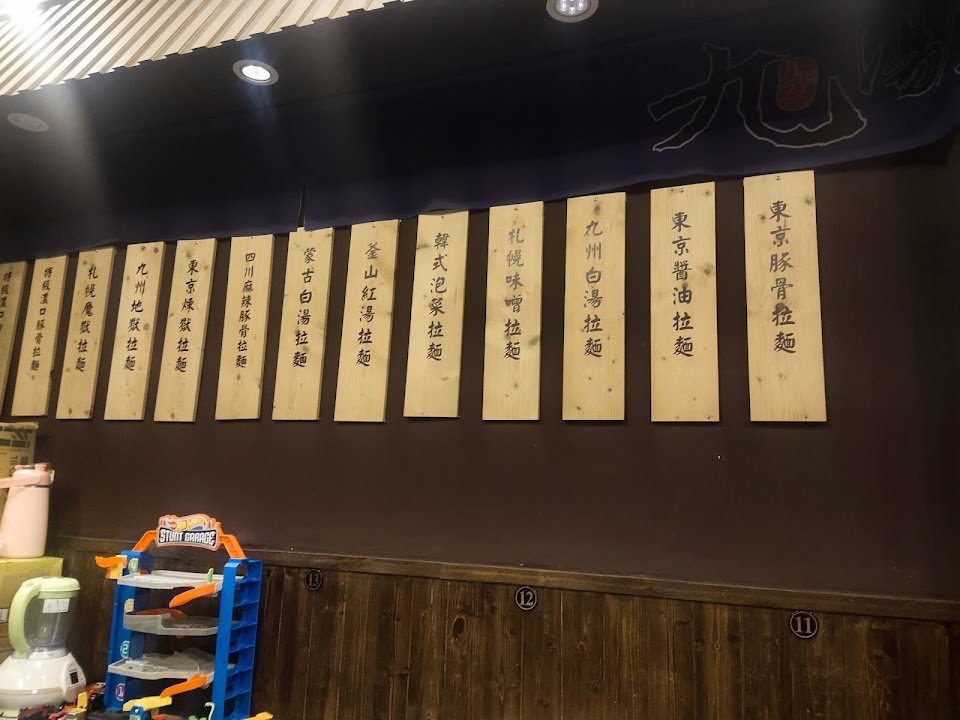 九湯
東京豚骨拉麵
東京醬油拉麵
九州白湯拉麵
札幌味噌拉麵
韓式泡菜拉麵
釜山紅湯拉麵
蒙古白湯拉麵
四川麻辣豚骨拉麵
東京煉獄拉麵
九州地獄拉麵
札幌魔獄拉麵
特級濃口豚骨拉麵
特級濃口
Hot Wheels
STUNT GARAGE
13
12
11
4
2
1